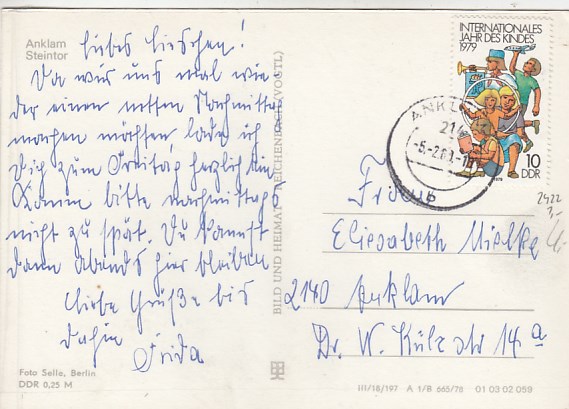 Anklam
Steintor
Liebes Lieschen!
Da wir uns mal wieder
der einen netten Nachmittag
machen möchten lade ich
Dich zum Freitag herzlich ein
Komm bitte nachmittags
nicht zu spät. Du kannst
dann Abends hier bleiben
Liebe Grüße bis
dahin
Frida
Foto Sella, Berlin
DDR 0,25 M
BILD UND HEIMAT REICHENBACH (VOGTL)
INTERNATIONALES
JAHR DES KINDES
1979
10
DDR
ANKLAM
Frau
Eliesabeth Mielke
2140 Anklam
Dr. W. Külz str 14 a
2422
III/18/197 A 1/B 665/78 01 03 02 059